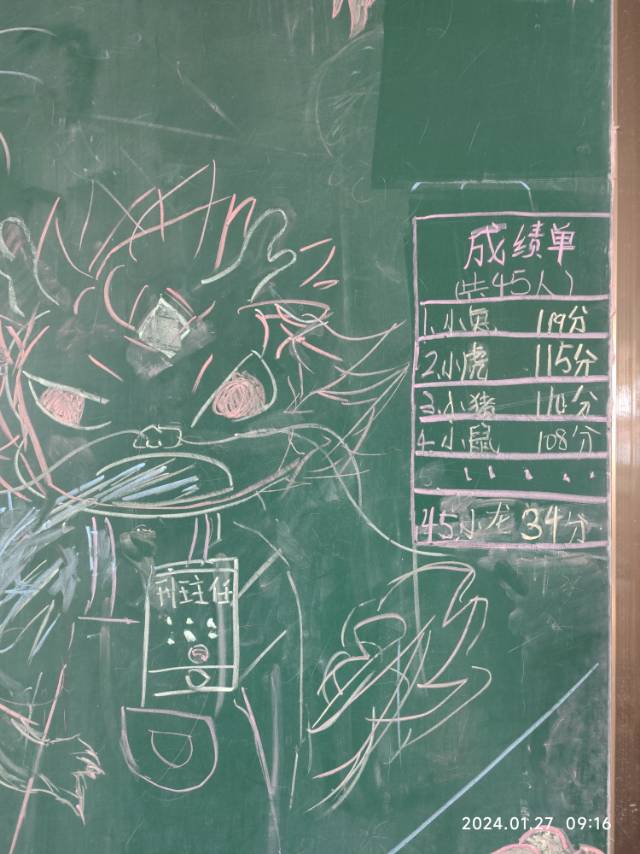 成绩单
(共45人)
1.小兔 119分
2.小虎 115分
3.小猪 110分
4.小鼠 108分
45.小龙 34分
班主任
2024.01.27 09:16